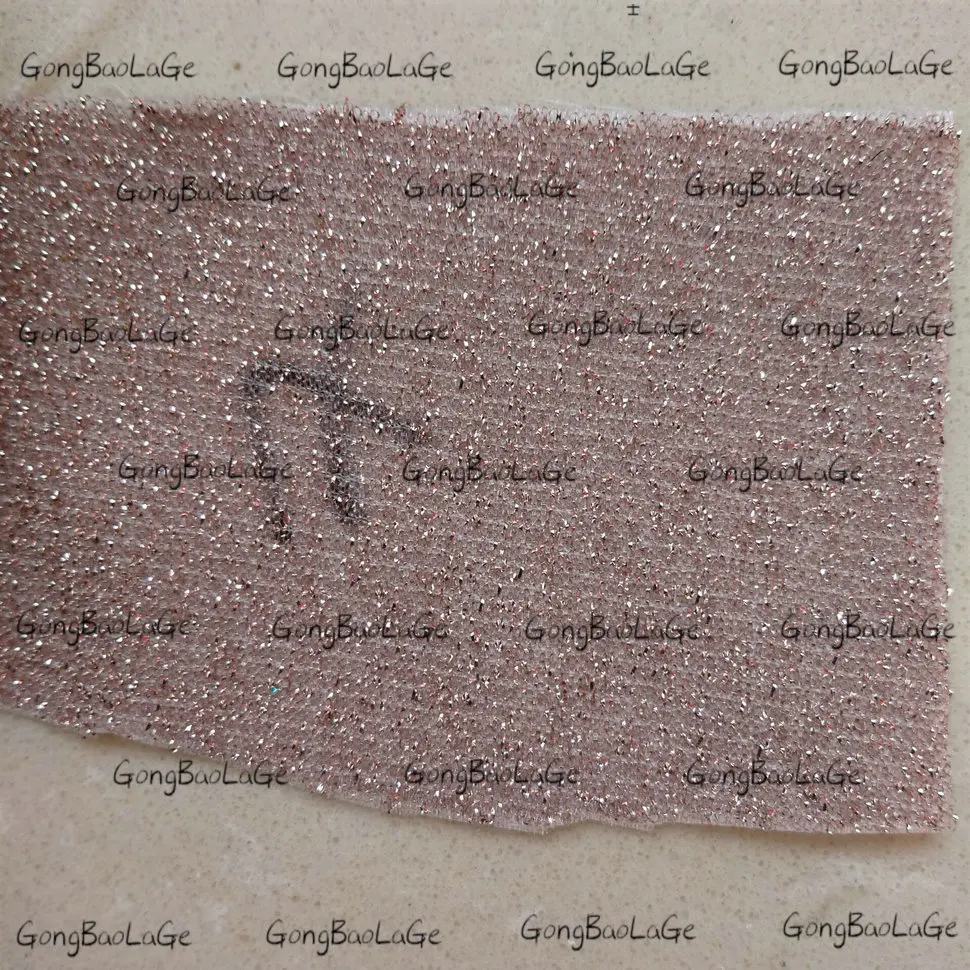 ±
GongBaoLaGe GongBaoLaGe GongBaoLaGe GongBaoLaGe
GongBaoLaGe GongBaoLaGe GongBaoLaGe
GongBaoLaGe GongBaoLaGe GongBaoLaGe GongBaoLaGe
GongBaoLaGe GongBaoLaGe GongBaoLaGe
GongBaoLaGe GongBaoLaGe GongBaoLaGe GongBaoLaGe
GongBaoLaGe GongBaoLaGe GongBaoLaGe
GongBaoLaGe GongBaoLaGe GongBaoLaGe GongBaoLaGe